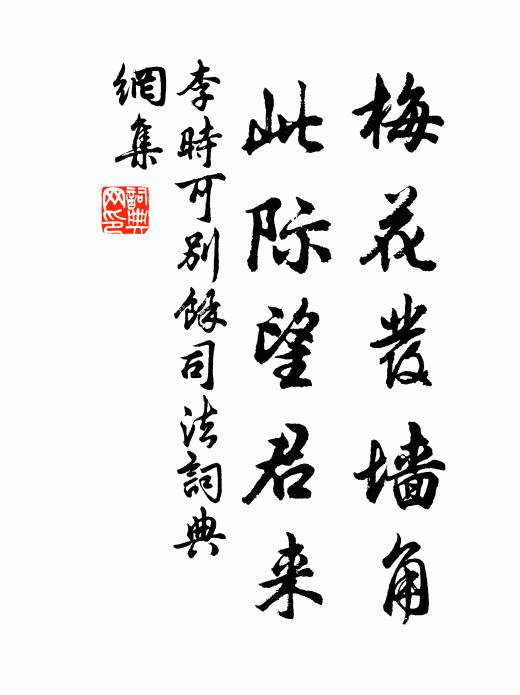 梅花發墙角
此际望君来
李時可别餘司法詞典
網集
詞典
网印